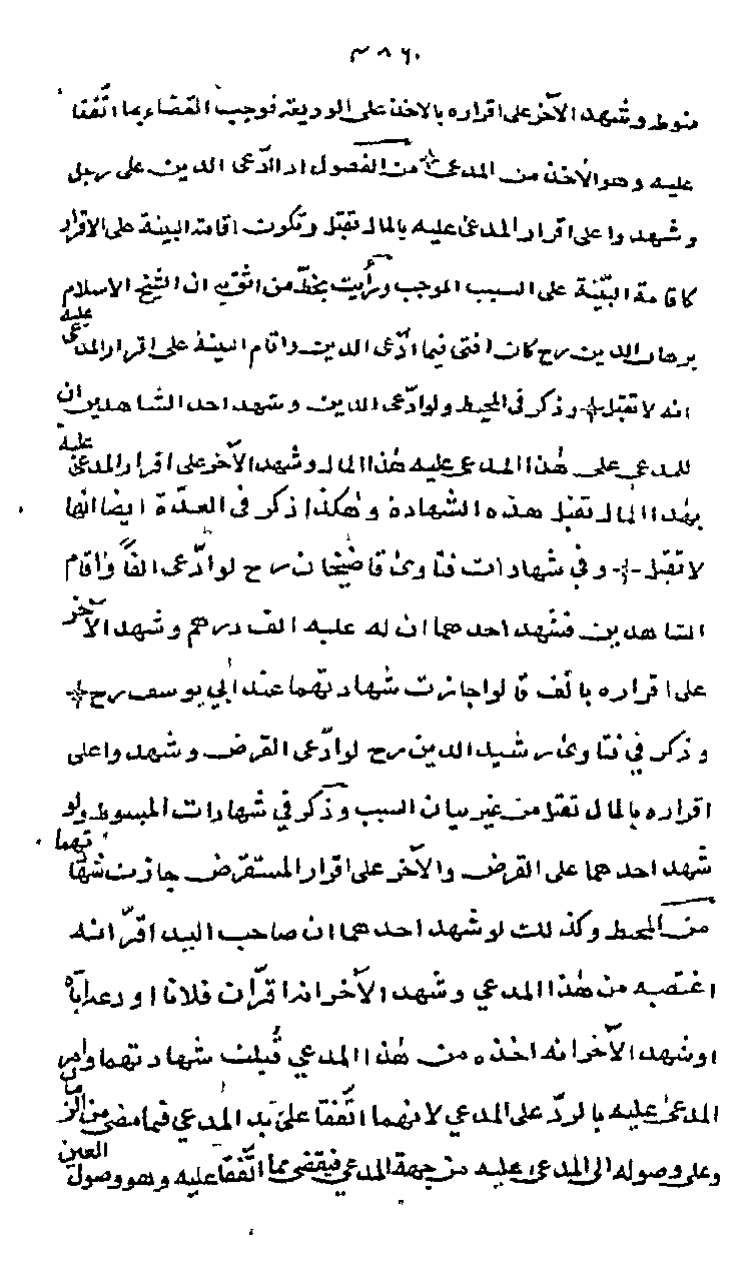 ٣٨٦
منوط وشهد الآخر على اقراره بالاخذ على الوديعة فوجب القضاء بما اتّفقا
عليه وهو الأخذ من المدعي من الفصول اذا ادّعى الدين على رجل
وشهدوا على اقرار المدعى عليه بالمال تقبل وتكون اقامة البينة على الاقرار
كاقامة البيّنة على السبب الموجب ورأيت بخطّ من اثق به ان الشيخ الاسلام
برهان الدين رح كان افتى فيما ادّعى الدين واقام البينة على اقرار المدعى عليه
انه لا تقبل وذكر في المحيط ولو ادّعى الدين وشهد احد الشاهدين ان
للمدعي على هٰذا المدعى عليه هٰذا المال وشهد الآخر على اقرار المدعىٰ عليه
بهٰذا المال تقبل هذه الشهادة وهٰكذا ذكر في العدّة ايضا انها
لا تقبل وفي شهادات فتاوىٰ قاضيخان رح لو ادّعى الفًا واقام
الشاهدين فشهد احدهما ان له عليه الف درهم وشهد الآخر
على اقراره بالف قالوا جازت شهادتهما عند ابي يوسف رح
وذكر في فتاوىٰ رشيد الدين رح لو ادّعى القرض وشهدوا على
اقراره بالمال تقبل من غير بيان السبب وذكر في شهادات المبسوط ولو
شهد احدهما على القرض والآخر على اقرار المستقرض جازت شهادتهما
من المحيط وكذلك لو شهد احدهما ان صاحب اليد اقرّ انه
اغتصبه من هٰذا المدعي وشهد الآخر انه اقرّ ان فلانا اودعه اياه
او شهد الآخر انه اخذه من هٰذا المدعي قُبلت شهادتهما وامر
المدعىٰ عليه بالردّ على المدعي لانهما اتّفقا على يد المدعي فيما مضى من الزمان
وعلى وصوله الى المدعى عليه من جهة المدعي فيقضى بما اتّفقا عليه وهو وصول العين